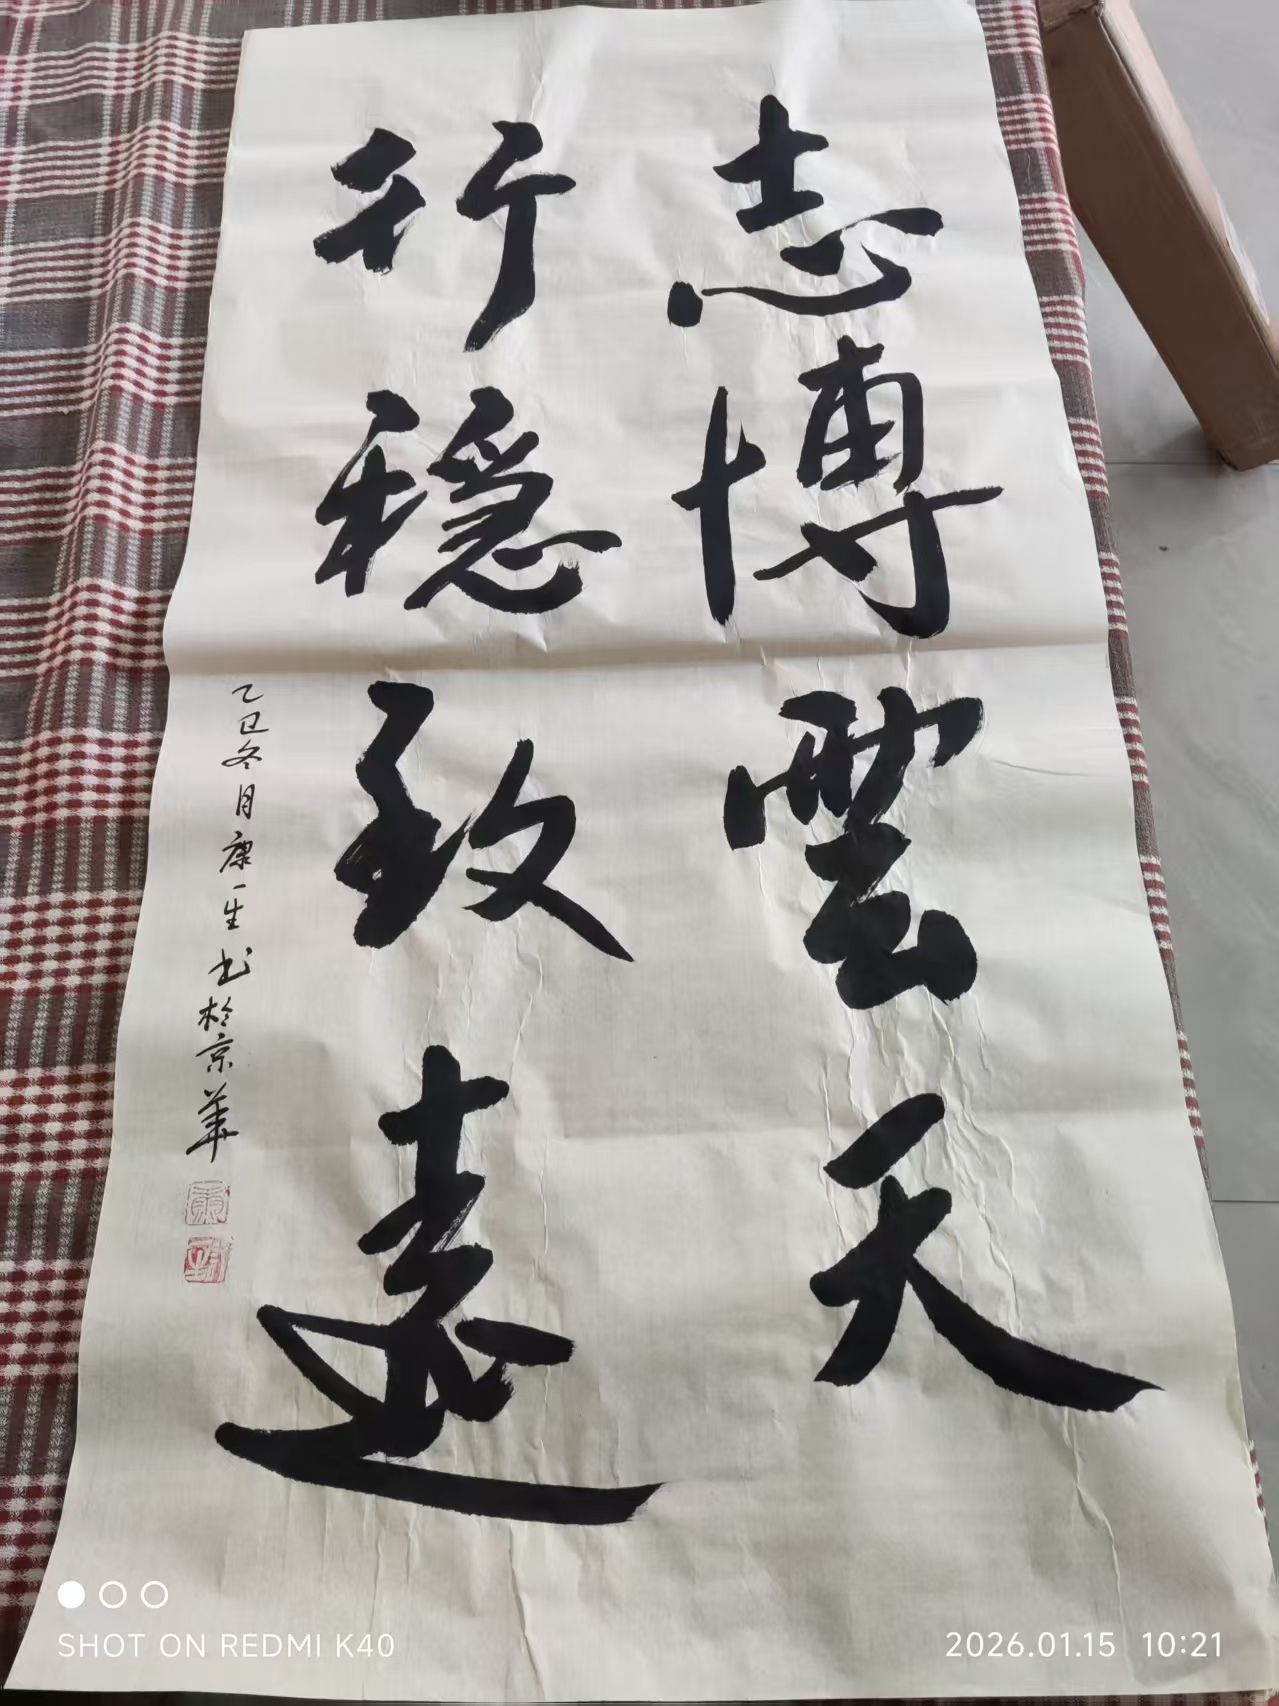 志博雲天
行穩致遠
乙巳冬月康一生书於京華
SHOT ON REDMI K40
2026.01.15 10:21